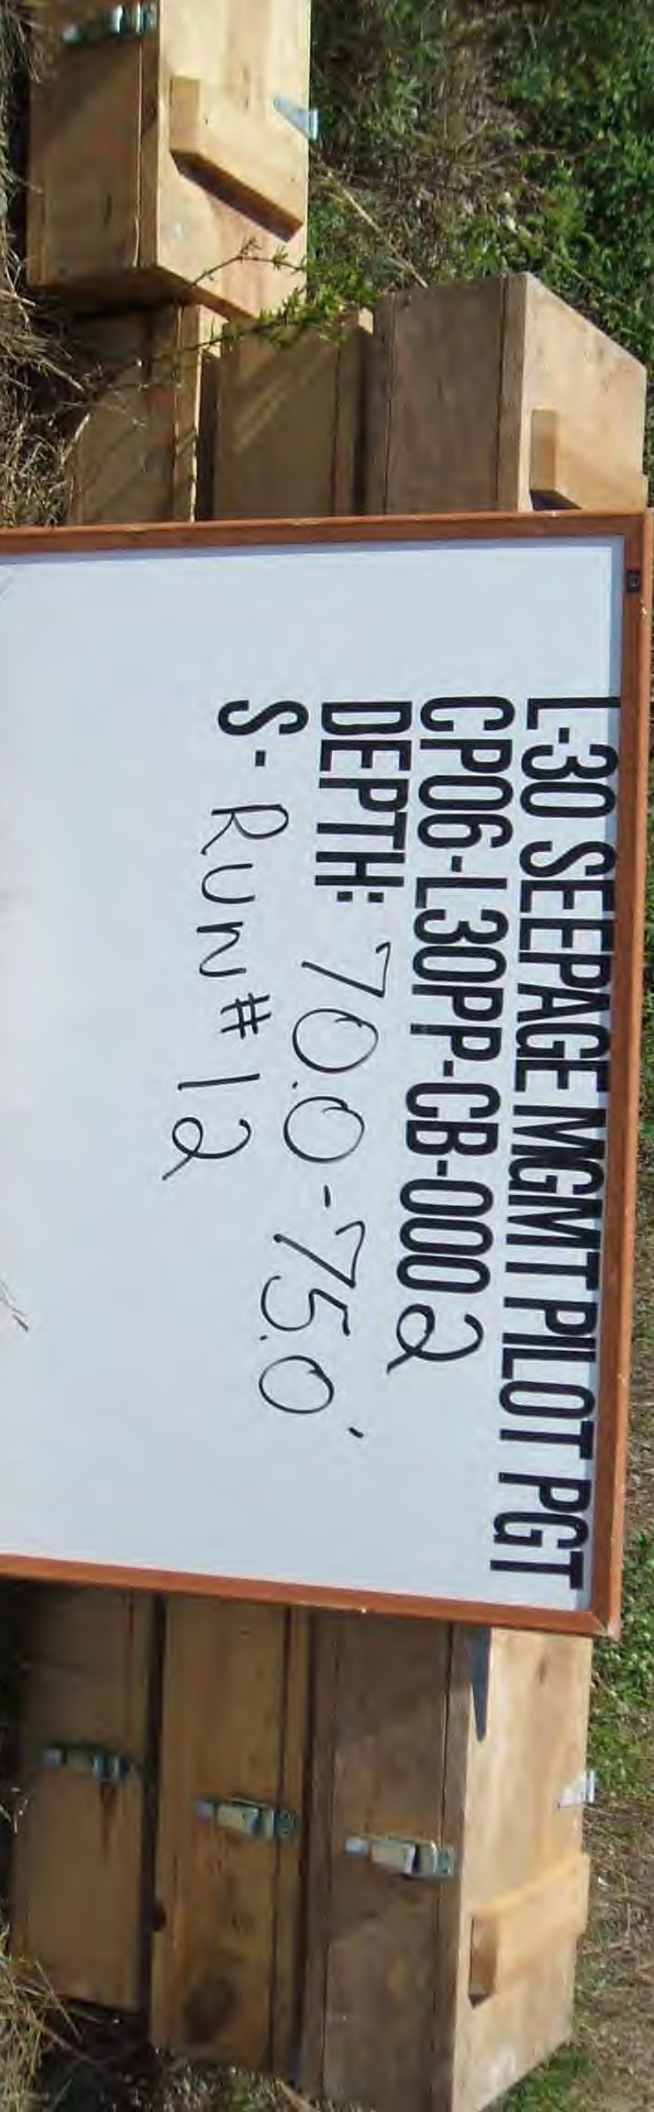 L-30 SEEPAGE MGMT PILOT PGT
CP06-L30PP-CB-0002
DEPTH: 70.0-75.0'
S- RUN #12